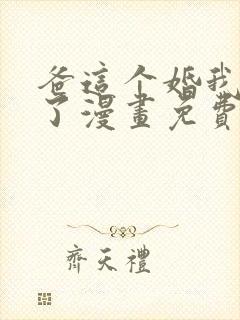 爸這个婚我
了漫畫免費
齊天禮